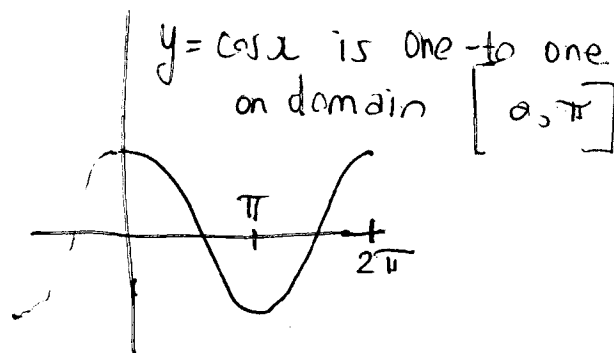 y = cos x is one-to one
on domain [0, π]
π
2π